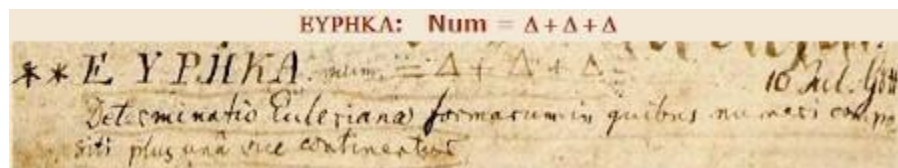 ΕΥΡΗΚΑ: Num = Δ+Δ+Δ
** E Y P H K A. num. = Δ + Δ + Δ. 10 Jul. Gött
Determinatio Euleriana formarum in quibus numeri compo
siti plus una vice continentur